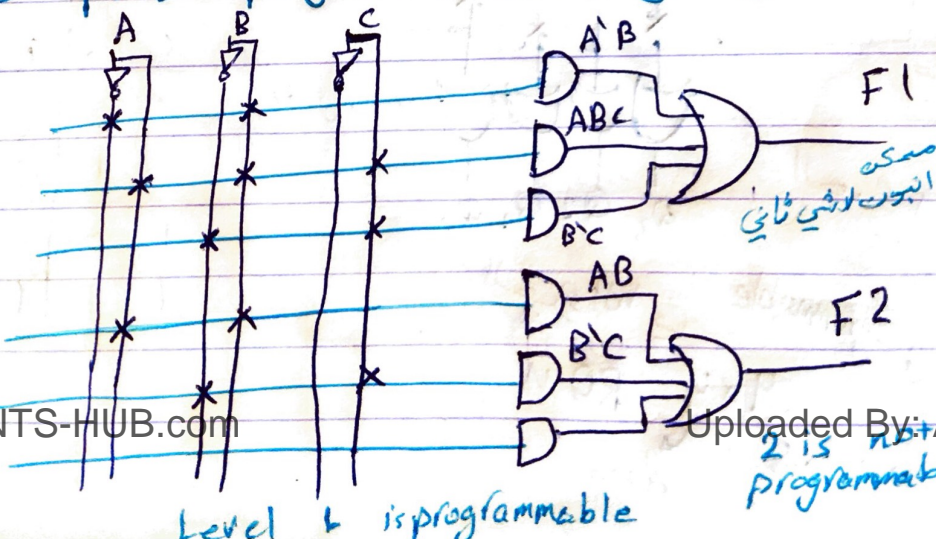 A B C
A`B
F1
ABC
ممكن
لاشي ثاني
B`C
AB
F2
B`C
NTS-HUB.com
Uploaded By: A
2 is not
programmab
Level 1 is programmable